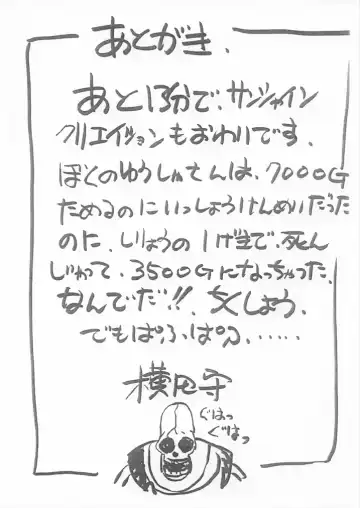 あとがき、
あと13分で、サンシャイン
クリエイションもおわりです、
ぼくのゆうしゃさんは、7000G
ためるのにいっしょうけんめいだった
のに、しりょうの1げきで、死ん
じゃって、3500Gになっちゃった、
なんでだ!!、ちくしょう、
でもぱふぱふ、……
横田守
ぐはっ
ぐはっ